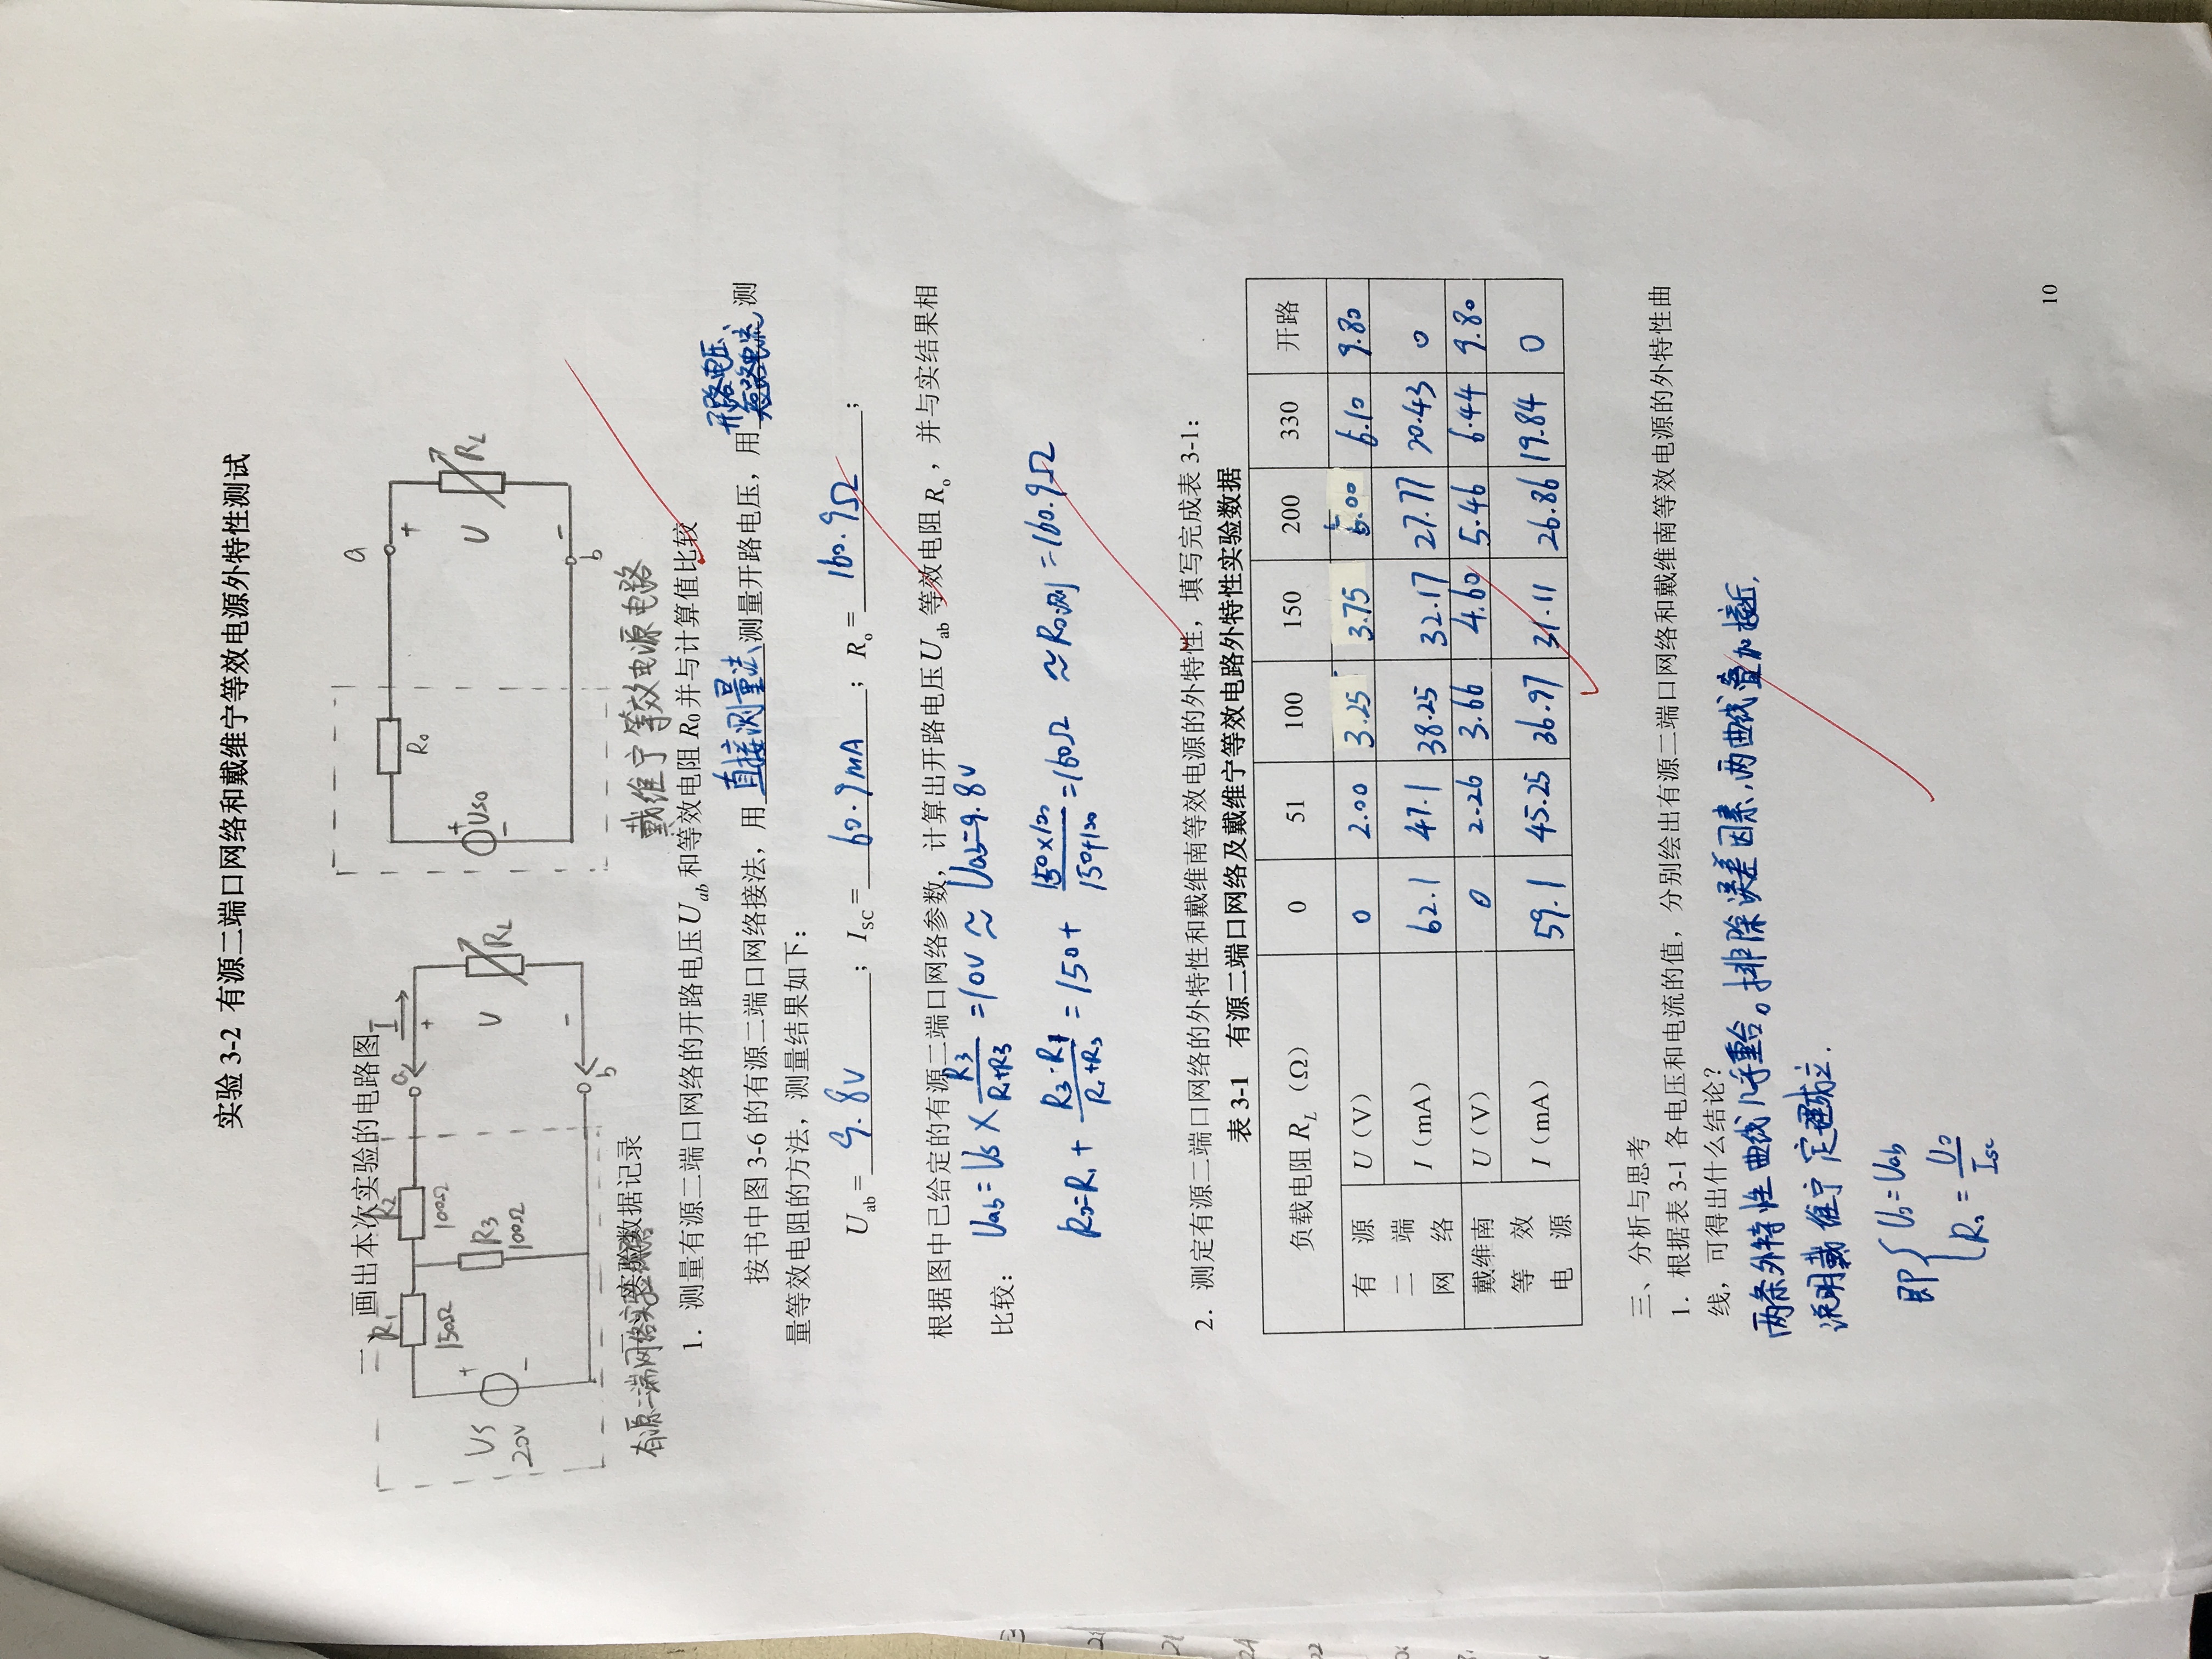 实验 3-2 有源二端口网络和戴维宁等效电源外特性测试
一、画出本次实验的电路图
R1 150Ω R2 100Ω R3 100Ω US 20V + - a I + U - RL b
R0 + USO - a + U - RL b
戴维宁等效电源电路
有源二端网络
二、实验数据记录
1．测量有源二端口网络的开路电压Uab和等效电阻R0并与计算值比较
按书中图 3-6 的有源二端口网络接法，用直接测量法测量开路电压，用开路电压、短路电流测
量等效电阻的方法，测量结果如下：
Uab= 9.8V ；ISC= 60.9mA ；Ro= 160.9Ω ；
根据图中已给定的有源二端口网络参数，计算出开路电压Uab等效电阻Ro，并与实结果相
比较：
Uab=US×R3/(R1+R3)=10V≈Uab=9.8V
R0=R1+(R3·R1)/(R1+R3)=150+(150×100)/(150+100)=160Ω ≈R0测=160.9Ω
2．测定有源二端口网络的外特性和戴维南等效电源的外特性，填写完成表 3-1：
表 3-1 有源二端口网络及戴维宁等效电路外特性实验数据
负载电阻RL（Ω） 0 51 100 150 200 330 开路
有源二端网络 U（V） 0 2.00 3.25 3.75 5.00 6.10 9.80
I（mA） 62.1 47.1 38.25 32.17 27.77 20.43 0
戴维南等效电源 U（V） 0 2.26 3.66 4.60 5.46 6.44 9.80
I（mA） 59.1 45.25 36.97 31.11 26.86 19.84 0
三、分析与思考
1．根据表 3-1 各电压和电流的值，分别绘出有源二端口网络和戴维南等效电源的外特性曲
线，可得出什么结论？
两条外特性曲线几乎重合。排除误差因素，两曲线叠加接近，
说明戴维宁定理成立.
即{U0=Uab
R0=U0/Isc
10